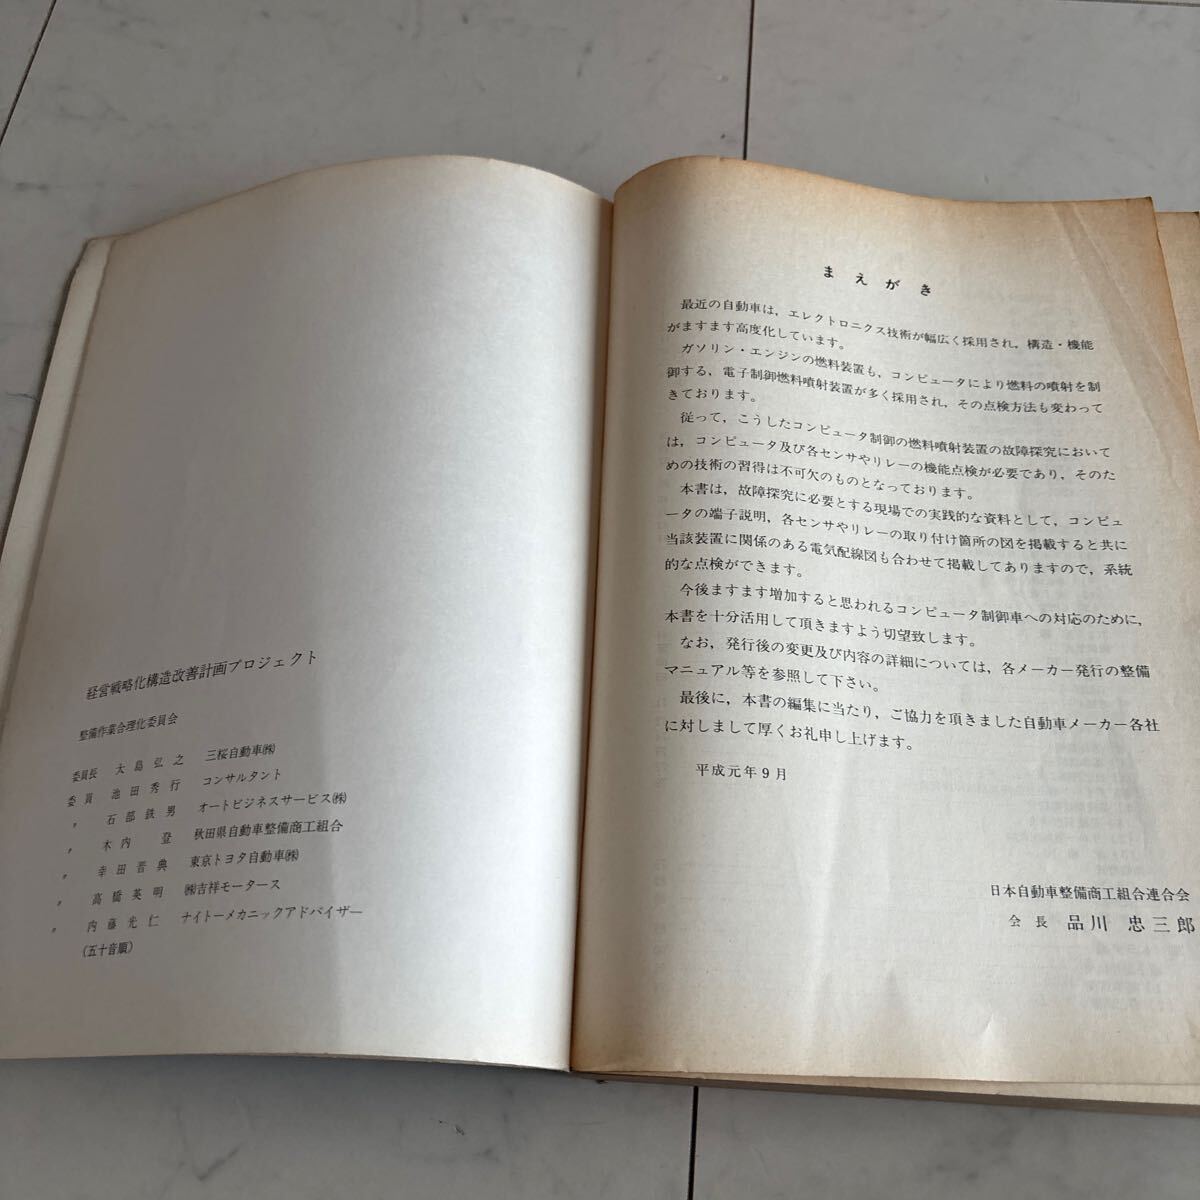 経営戦略化構造改善計画プロジェクト
整備作業合理化委員会
委員長 大島弘之 三桜自動車㈱
委員 池田秀行 コンサルタント
〃 石部鉄男 オートビジネスサービス㈱
〃 木内登 秋田県自動車整備商工組合
〃 幸田晋典 東京トヨタ自動車㈱
〃 高橋英明 ㈱吉祥モータース
〃 内藤光仁 ナイトーメカニックアドバイザー
(五十音順)
まえがき
最近の自動車は，エレクトロニクス技術が幅広く採用され，構造・機能
がますます高度化しています。
ガソリン・エンジンの燃料装置も，コンピュータにより燃料の噴射を制
御する，電子制御燃料噴射装置が多く採用され，その点検方法も変わって
きております。
従って，こうしたコンピュータ制御の燃料噴射装置の故障探究において
は，コンピュータ及び各センサやリレーの機能点検が必要であり，そのた
めの技術の習得は不可欠のものとなっております。
本書は，故障探究に必要とする現場での実践的な資料として，コンピュ
ータの端子説明，各センサやリレーの取り付け箇所の図を掲載すると共に
当該装置に関係のある電気配線図も合わせて掲載してありますので，系統
的な点検ができます。
今後ますます増加すると思われるコンピュータ制御車への対応のために，
本書を十分活用して頂きますよう切望致します。
なお，発行後の変更及び内容の詳細については，各メーカー発行の整備
マニュアル等を参照して下さい。
最後に，本書の編集に当たり，ご協力を頂きました自動車メーカー各社
に対しまして厚くお礼申し上げます。
平成元年9月
日本自動車整備商工組合連合会
会長 品川忠三郎